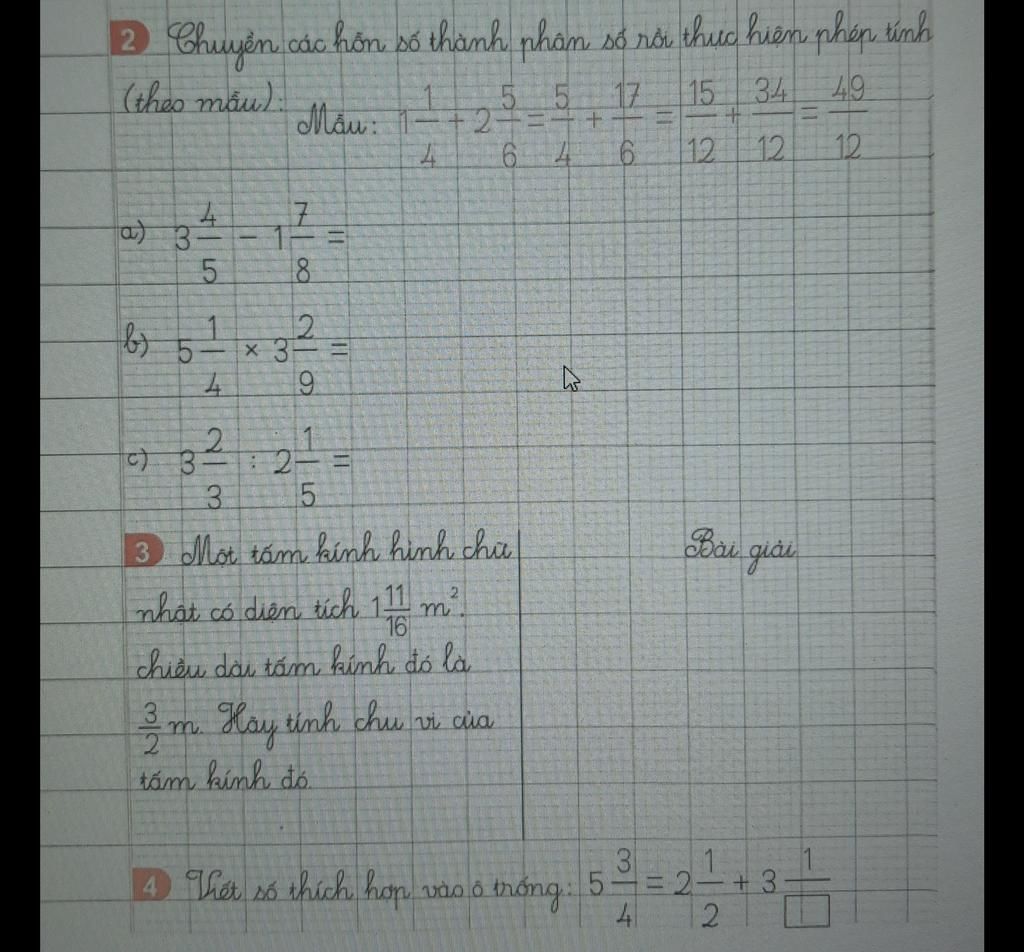 2 Chuyển các hỗn số thành phân số rồi thực hiện phép tính
(theo mẫu): Mẫu: 1 1/4 + 2 5/6 = 5/4 + 17/6 = 15/12 + 34/12 = 49/12
a) 3 4/5 - 1 7/8 =
b) 5 1/4 × 3 2/9 =
c) 3 2/3 : 2 1/5 =
3 Một tấm kính hình chữ
nhật có diện tích 1 11/16 m².
chiều dài tấm kính đó là
3/2 m. Hãy tính chu vi của
tấm kính đó.
Bài giải
4 Viết số thích hợp vào ô trống: 5 3/4 = 2 1/2 + 3 1/□